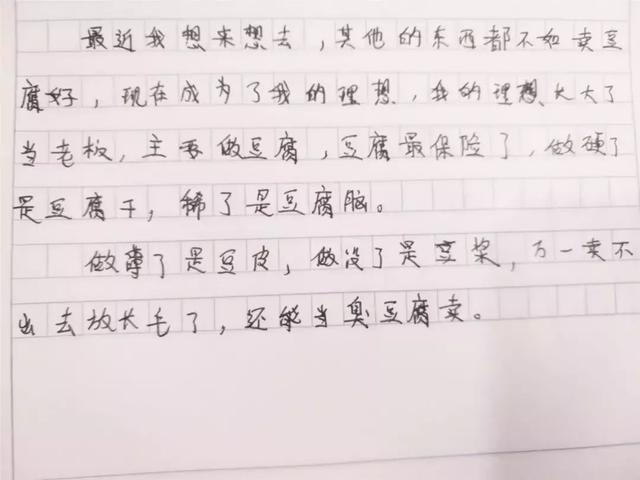 最近我想来想去，其他的东西都不如卖豆
腐好，现在成为了我的理想，我的理想、长大了
当老板，主要做豆腐，豆腐最保险了，做硬了
是豆腐干，稀了是豆腐脑。
做薄了是豆皮，做没了是豆浆，万一卖不
出去放长毛了，还能当臭豆腐卖。